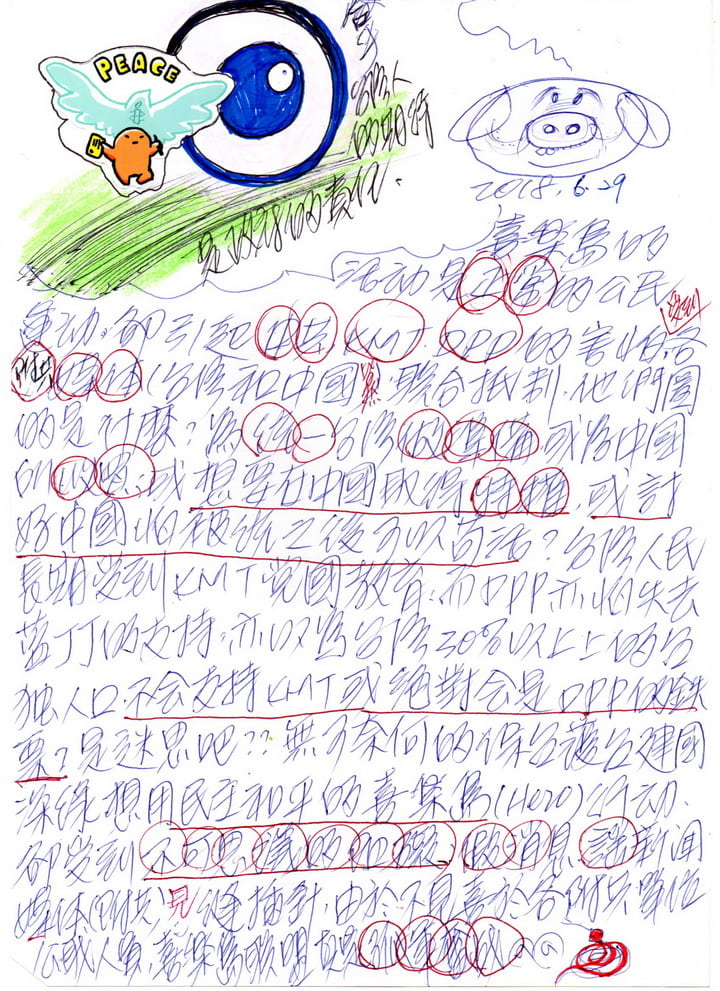 PEACE
和平
台湾人
的期待
是政治的責任.
2018.6.29
喜樂島的
活动是正常的公民
运动.卻引起中共KMT.DPP的害怕.各
附共媒体(台湾和中國)联合抵制.他們圖
的是什麼?為統一台湾做準備或為中國
所收買.或想要在中國取得特權.或討
好中國怕被統之後可以苟活?台湾人民
長期受到KMT党國教育.而DPP亦怕失去
藍丁丁的支持.亦以為台湾20%以上上的台
独人口.不会支持KMT或絕對会是DPP的鉄
票?是迷思吧??無可奈何的保台護台建國
深綠想用民主和平的喜樂島(Hero)行动.
卻受到不可思議的 假消息
媒体(附共)見縫插針.由於不見喜於各附共單位
公職人員.喜樂島聯盟